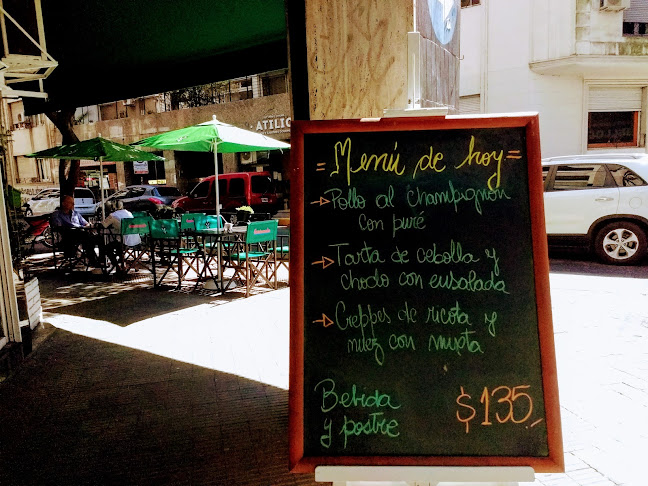 ATILIO
= Menú de hoy =
→ Pollo al champignon
con puré
→ Tarta de cebolla y
choclo con ensalada
→ Creppes de ricota y
nuez con mixta
Bebida
y postre
$135.-